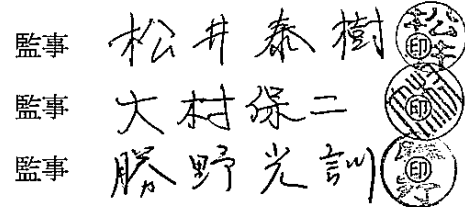 監事 松井泰樹 印
監事 大村保二 印
監事 勝野光訓 印